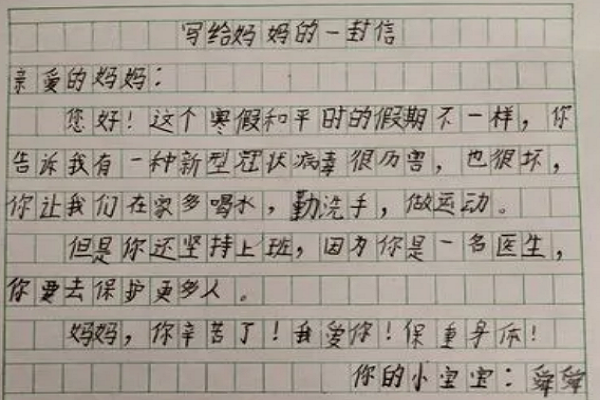 写给妈妈的一封信
亲爱的妈妈：
您好！这个寒假和平时的假期不一样，你
告诉我有一种新型冠状病毒很历害，也很坏，
你让我们在家多喝水，勤洗手，做运动。
但是你还坚持上班，因为你是一名医生，
你要去保护更多人。
妈妈，你辛苦了！我爱你！保重身体！
你的小宝宝：舜舜